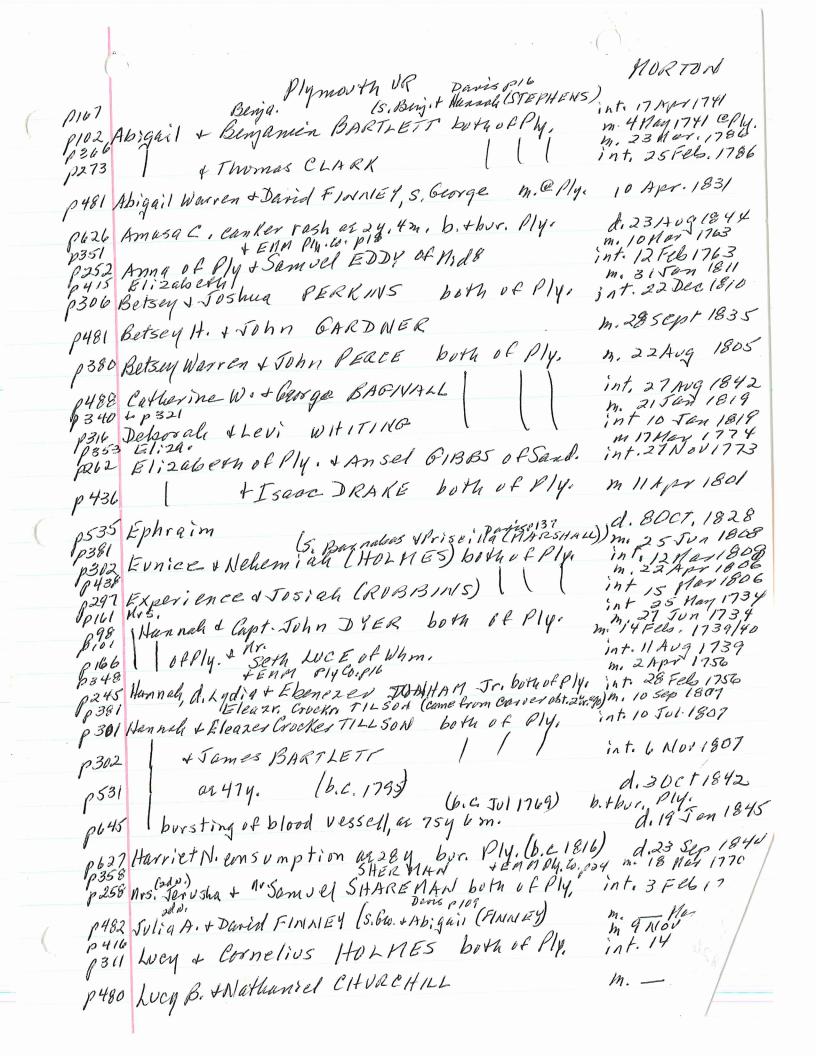 MORTON
Plymouth VR Davis p16
p167 Benja. (s. Benj. + Hannah (STEPHENS) int. 17 Apr 1741
p102 Abigail + Benjamin BARTLETT both of Ply. m. 4 May 1741 @ Ply.
p366 m. 23 Mar. 1786
p273 | + Thomas CLARK | | | int. 25 Feb. 1786
p481 Abigail Warren + David FINNEY, s. George m. @ Ply. 10 Apr. 1831
p626 Amasa C. canker rash ae 2y. 4m. b. + bur. Ply. d. 23 Aug 1844
p351 + EMM Ply. Co. p18 m. 10 Mar 1763
p252 Anna of Ply + Samuel EDDY of Mid8 int. 12 Feb 1763
p415 Elizabeth m. 31 Jan 1811
p306 Betsey + Joshua PERKINS both of Ply. int. 22 Dec 1810
p481 Betsey H. + John GARDNER m. 28 Sept 1835
p380 Betsey Warren + John PEARCE both of Ply. m. 22 Aug 1805
p488 Catherine W. + George BAGNALL | | | int. 27 Aug 1842
p340 + p321 m. 21 Jan 1819
p316 Deborah + Levi WHITING int 10 Jan 1819
p353 Eliza. m 17 May 1774
p262 Elizabeth of Ply. + Ansel GIBBS of Sand. int. 27 Nov 1773
p436 | + Isaac DRAKE both of Ply. m 11 Apr 1801
p535 Ephraim d. 8 OCT, 1828
p381 (s. Barnabas + Priscilla (MARSHALL)) Davis p137 m. 25 Jun 1808
p302 Eunice + Nehemiah (HOLMES) both of Ply. int. 12 Mar 1808
p438 m. 22 Apr 1806
p297 Experience + Josiah (ROBBINS) | | | int 15 Mar 1806
p161 Mrs. int 25 May 1734
p98 Hannah + Capt. John DYER both of Ply. m. 27 Jun 1734
p101 m. 14 Feb. 1739/40
p166 | | of Ply. + Mr. Seth LUCE of Whm. int. 11 Aug 1739
p348 + EMM Ply Co. p16 m. 2 Apr 1756
p245 Hannah, d. Lydia + Ebenezer DONHAM Jr. both of Ply. int. 28 Feb 1756
p381 Eleazr. Crocker TILSON (came from Carver abt. 24 ago) m. 10 Sep 1807
p301 Hannah + Eleazer Crocker TILLSON both of Ply. int. 10 Jul 1807
p302 | + James BARTLETT | | | int. 6 Nov 1807
p531 | ae 47y. (b.c. 1795) d. 3 Oct 1842
(b.c. Jul 1769) b. + bur. Ply.
p645 | bursting of blood vessell, ae 75y 6m. d. 19 Jan 1845
p627 Harriet N. consumption ae 28y bur. Ply. (b.c 1816) d. 23 Sep 1844
p358 SHERMAN + EMM Ply. Co. p24 m. 18 Mar 1770
p258 Mrs. (2d N.) Jerusha + Mr Samuel SHAREMAN both of Ply, int. 3 Feb 17
2d N. Davis p109
p482 Julia A. + David FINNEY (s. Geo. + Abigail (FINNEY) m. — Mar
p416 m 9 Nov
p311 Lucy + Cornelius HOLMES both of Ply. int. 14
p480 Lucy B. + Nathaniel CHURCHILL m. —